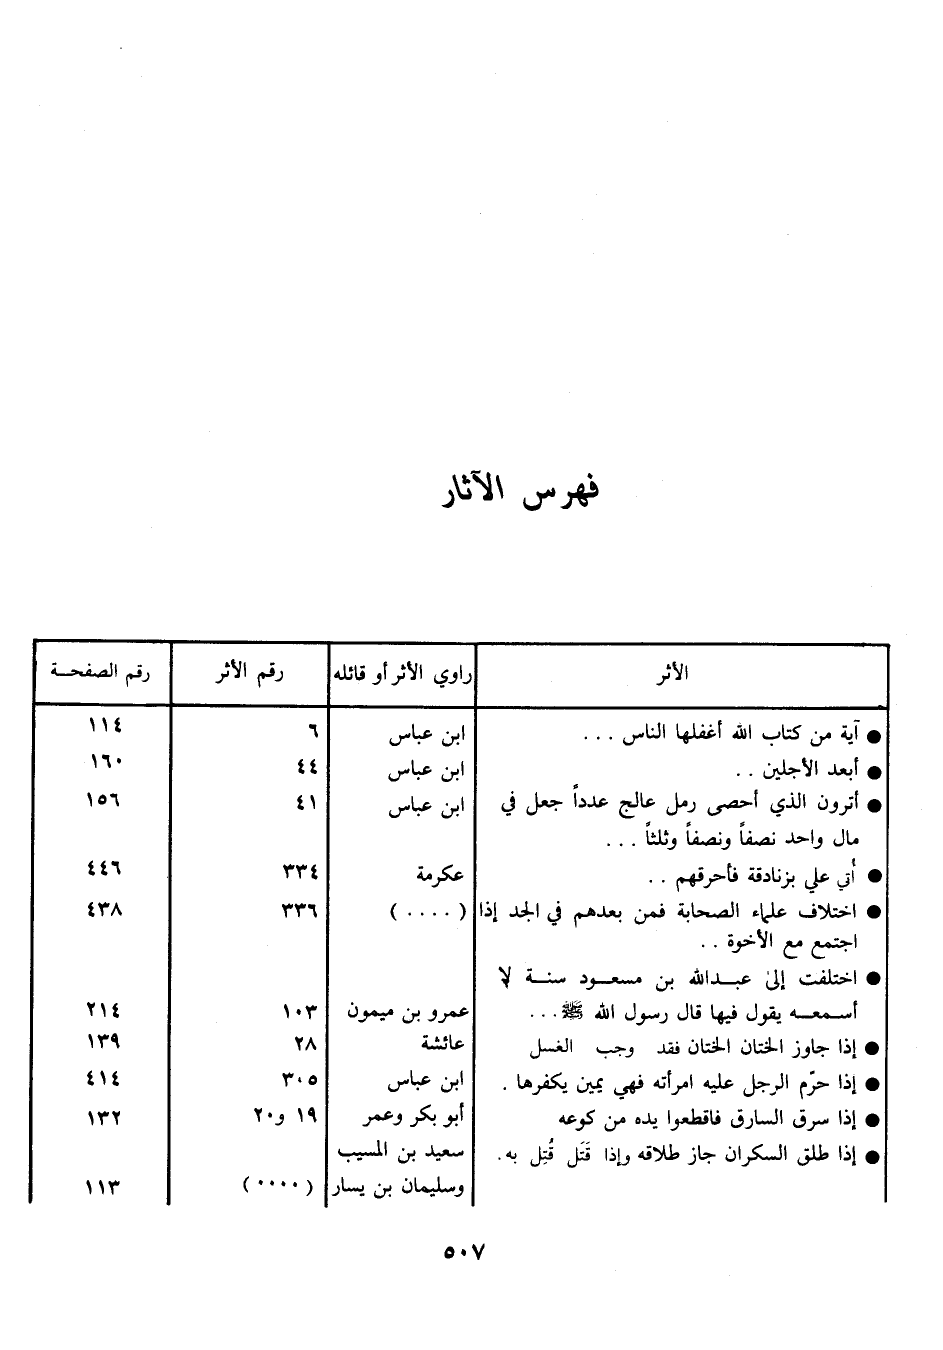 فهرس الآثار
الأثر راوي الأثر أو قائله رقم الأثر رقم الصفحـة
● آية من كتاب الله أغفلها الناس ... ابن عباس ٦ ١١٤
● أبعد الأجلين .. ابن عباس ٤٤ ١٦٠
● أترون الذي أحصى رمل عالج عدداً جعل في ابن عباس ٤١ ١٥٦
مال واحد نصفاً ونصفاً وثلثاً ...
● أُتي علي بزنادقة فأحرقهم .. عكرمة ٣٣٤ ٤٤٦
● اختلاف علماء الصحابة فمن بعدهم في الجد إذا (....) ٣٣٦ ٤٣٨
اجتمع مع الأخوة ..
● اختلفت إلى عبـدالله بن مسعـود سنـة لا
أسـمعـه يقول فيها قال رسول الله ﷺ ... عمرو بن ميمون ١٠٣ ٢١٤
● إذا جاوز الختان الختان فقد وجب الغسل عائشة ٢٨ ١٣٩
● إذا حرّم الرجل عليه امرأته فهي يمين يكفرها . ابن عباس ٣٠٥ ٤١٤
● إذا سرق السارق فاقطعوا يده من كوعه أبو بكر وعمر ١٩ و٢٠ ١٣٢
● إذا طلق السكران جاز طلاقه وإذا قَتَل قُتِل به. سعيد بن المسيب
وسليمان بن يسار (....) ١١٣
٥٠٧